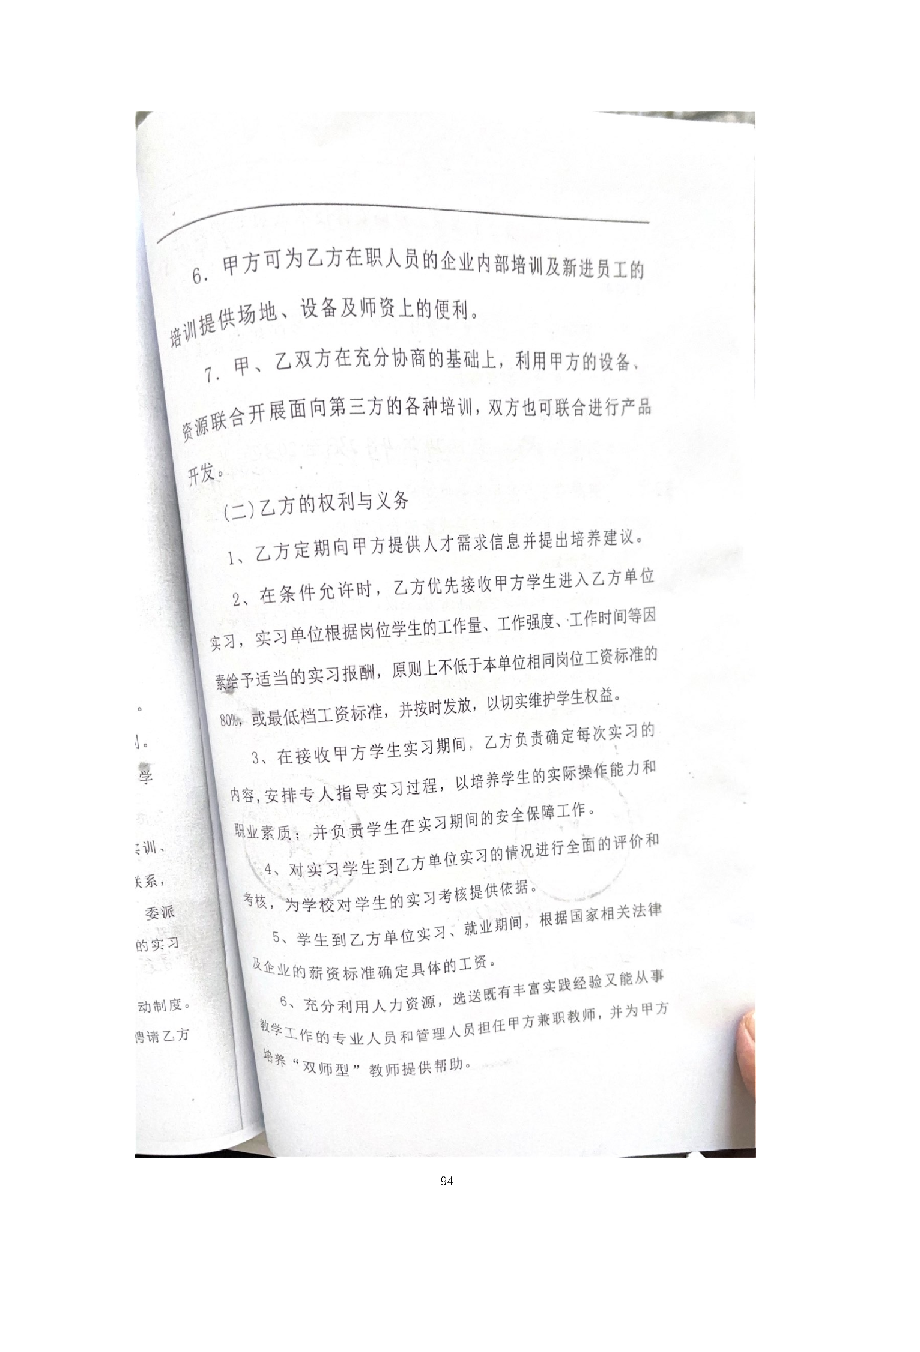 6. 甲方可为乙方在职人员的企业内部培训及新进员工的
培训提供场地、设备及师资上的便利。
7. 甲、乙双方在充分协商的基础上，利用甲方的设备、
资源联合开展面向第三方的各种培训，双方也可联合进行产品
开发。
(二)乙方的权利与义务
1、乙方定期向甲方提供人才需求信息并提出培养建议。
2、在条件允许时，乙方优先接收甲方学生进入乙方单位
实习，实习单位根据岗位学生的工作量、工作强度、工作时间等因
素给予适当的实习报酬，原则上不低于本单位相同岗位工资标准的
80%，或最低档工资标准，并按时发放，以切实维护学生权益。
3、在接收甲方学生实习期间，乙方负责确定每次实习的
内容,安排专人指导实习过程，以培养学生的实际操作能力和
职业素质；并负责学生在实习期间的安全保障工作。
4、对实习学生到乙方单位实习的情况进行全面的评价和
考核，为学校对学生的实习考核提供依据。
5、学生到乙方单位实习、就业期间，根据国家相关法律
及企业的薪资标准确定具体的工资。
6、充分利用人力资源，选送既有丰富实践经验又能从事
教学工作的专业人员和管理人员担任甲方兼职教师，并为甲方
培养“双师型”教师提供帮助。
学
训、
系，
委派
的实习
动制度。
聘请乙方
94